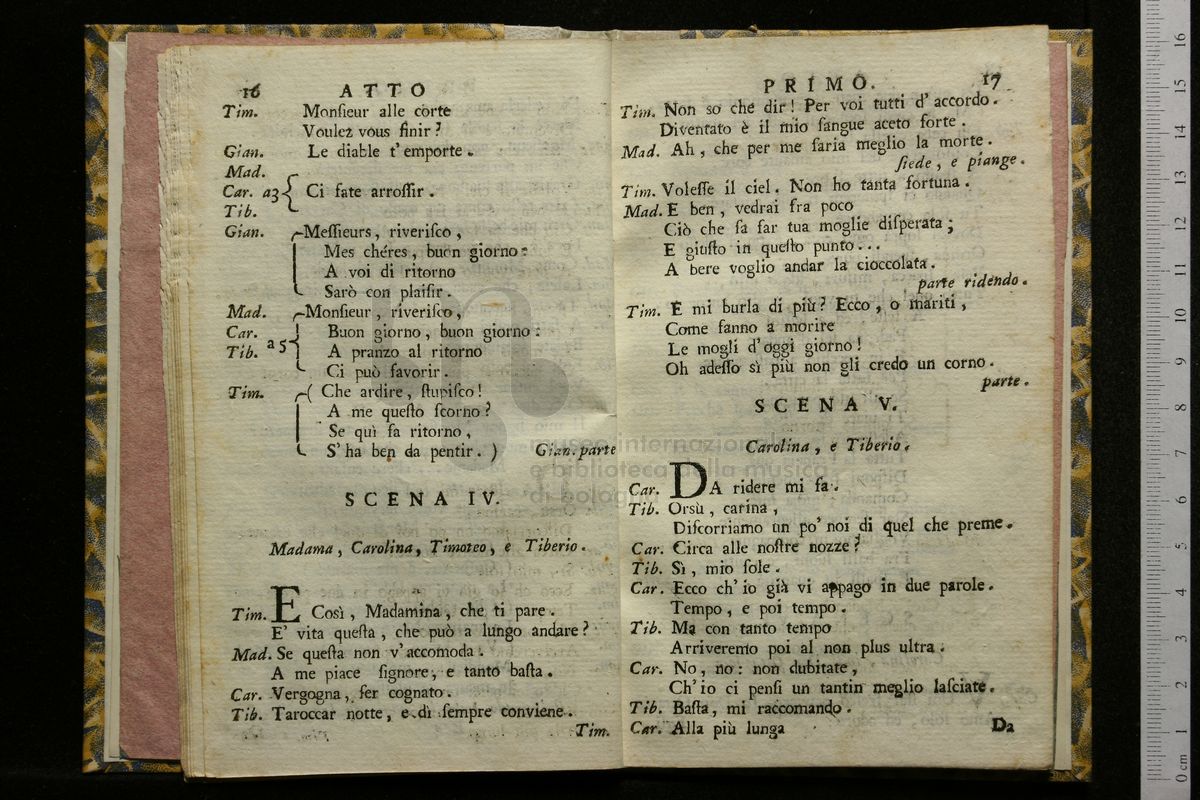 16 ATTO
Tim. Monſieur alle corte
Voulez vous finir?
Gian. Le diable t'emporte.
Mad.
Car. a3 Ci fate arroſſir.
Tib.
Gian. Meſſieurs, riveriſco,
Mes chéres, buon giorno:
A voi di ritorno
Sarò con plaiſir.
Mad. Monſieur, riveriſco,
Car. Buon giorno, buon giorno:
Tib. a 5 A pranzo al ritorno
Ci può favorir.
Tim. ( Che ardire, ſtupiſco!
A me queſto ſcorno?
Se quì fa ritorno,
S'ha ben da pentir. ) Gian. parte
SCENA IV.
Madama, Carolina, Timoteo, e Tiberio.
Tim. E Così, Madamina, che ti pare.
E' vita queſta, che può a lungo andare?
Mad. Se queſta non v'accomoda.
A me piace ſignore, e tanto baſta.
Car. Vergogna, ſer cognato.
Tib. Taroccar notte, e dì ſempre conviene.
Tim.
PRIMO. 17
Tim. Non so che dir! Per voi tutti d'accordo.
Diventato è il mio ſangue aceto forte.
Mad. Ah, che per me ſaria meglio la morte.
ſiede, e piange.
Tim. Voleſſe il ciel. Non ho tanta fortuna.
Mad. E ben, vedrai fra poco
Ciò che ſa far tua moglie diſperata;
E giuſto in queſto punto...
A bere voglio andar la cioccolata.
parte ridendo.
Tim. E mi burla di più? Ecco, o mariti,
Come fanno a morire
Le mogli d'oggi giorno!
Oh adeſſo sì più non gli credo un corno.
parte.
SCENA V.
Carolina, e Tiberio.
Car. DA ridere mi fa.
Tib. Orsù, carina,
Diſcorriamo un po' noi di quel che preme.
Car. Circa alle noſtre nozze?
Tib. Sì, mio ſole.
Car. Ecco ch'io già vi appago in due parole.
Tempo, e poi tempo.
Tib. Ma con tanto tempo
Arriveremo poi al non plus ultra.
Car. No, no: non dubitate,
Ch'io ci penſi un tantin meglio laſciate.
Tib. Baſta, mi raccomando.
Car. Alla più lunga
Da
museo internazionale
e biblioteca della musica
di bologna
0 cm 1 2 3 4 5 6 7 8 9 10 11 12 13 14 15 16